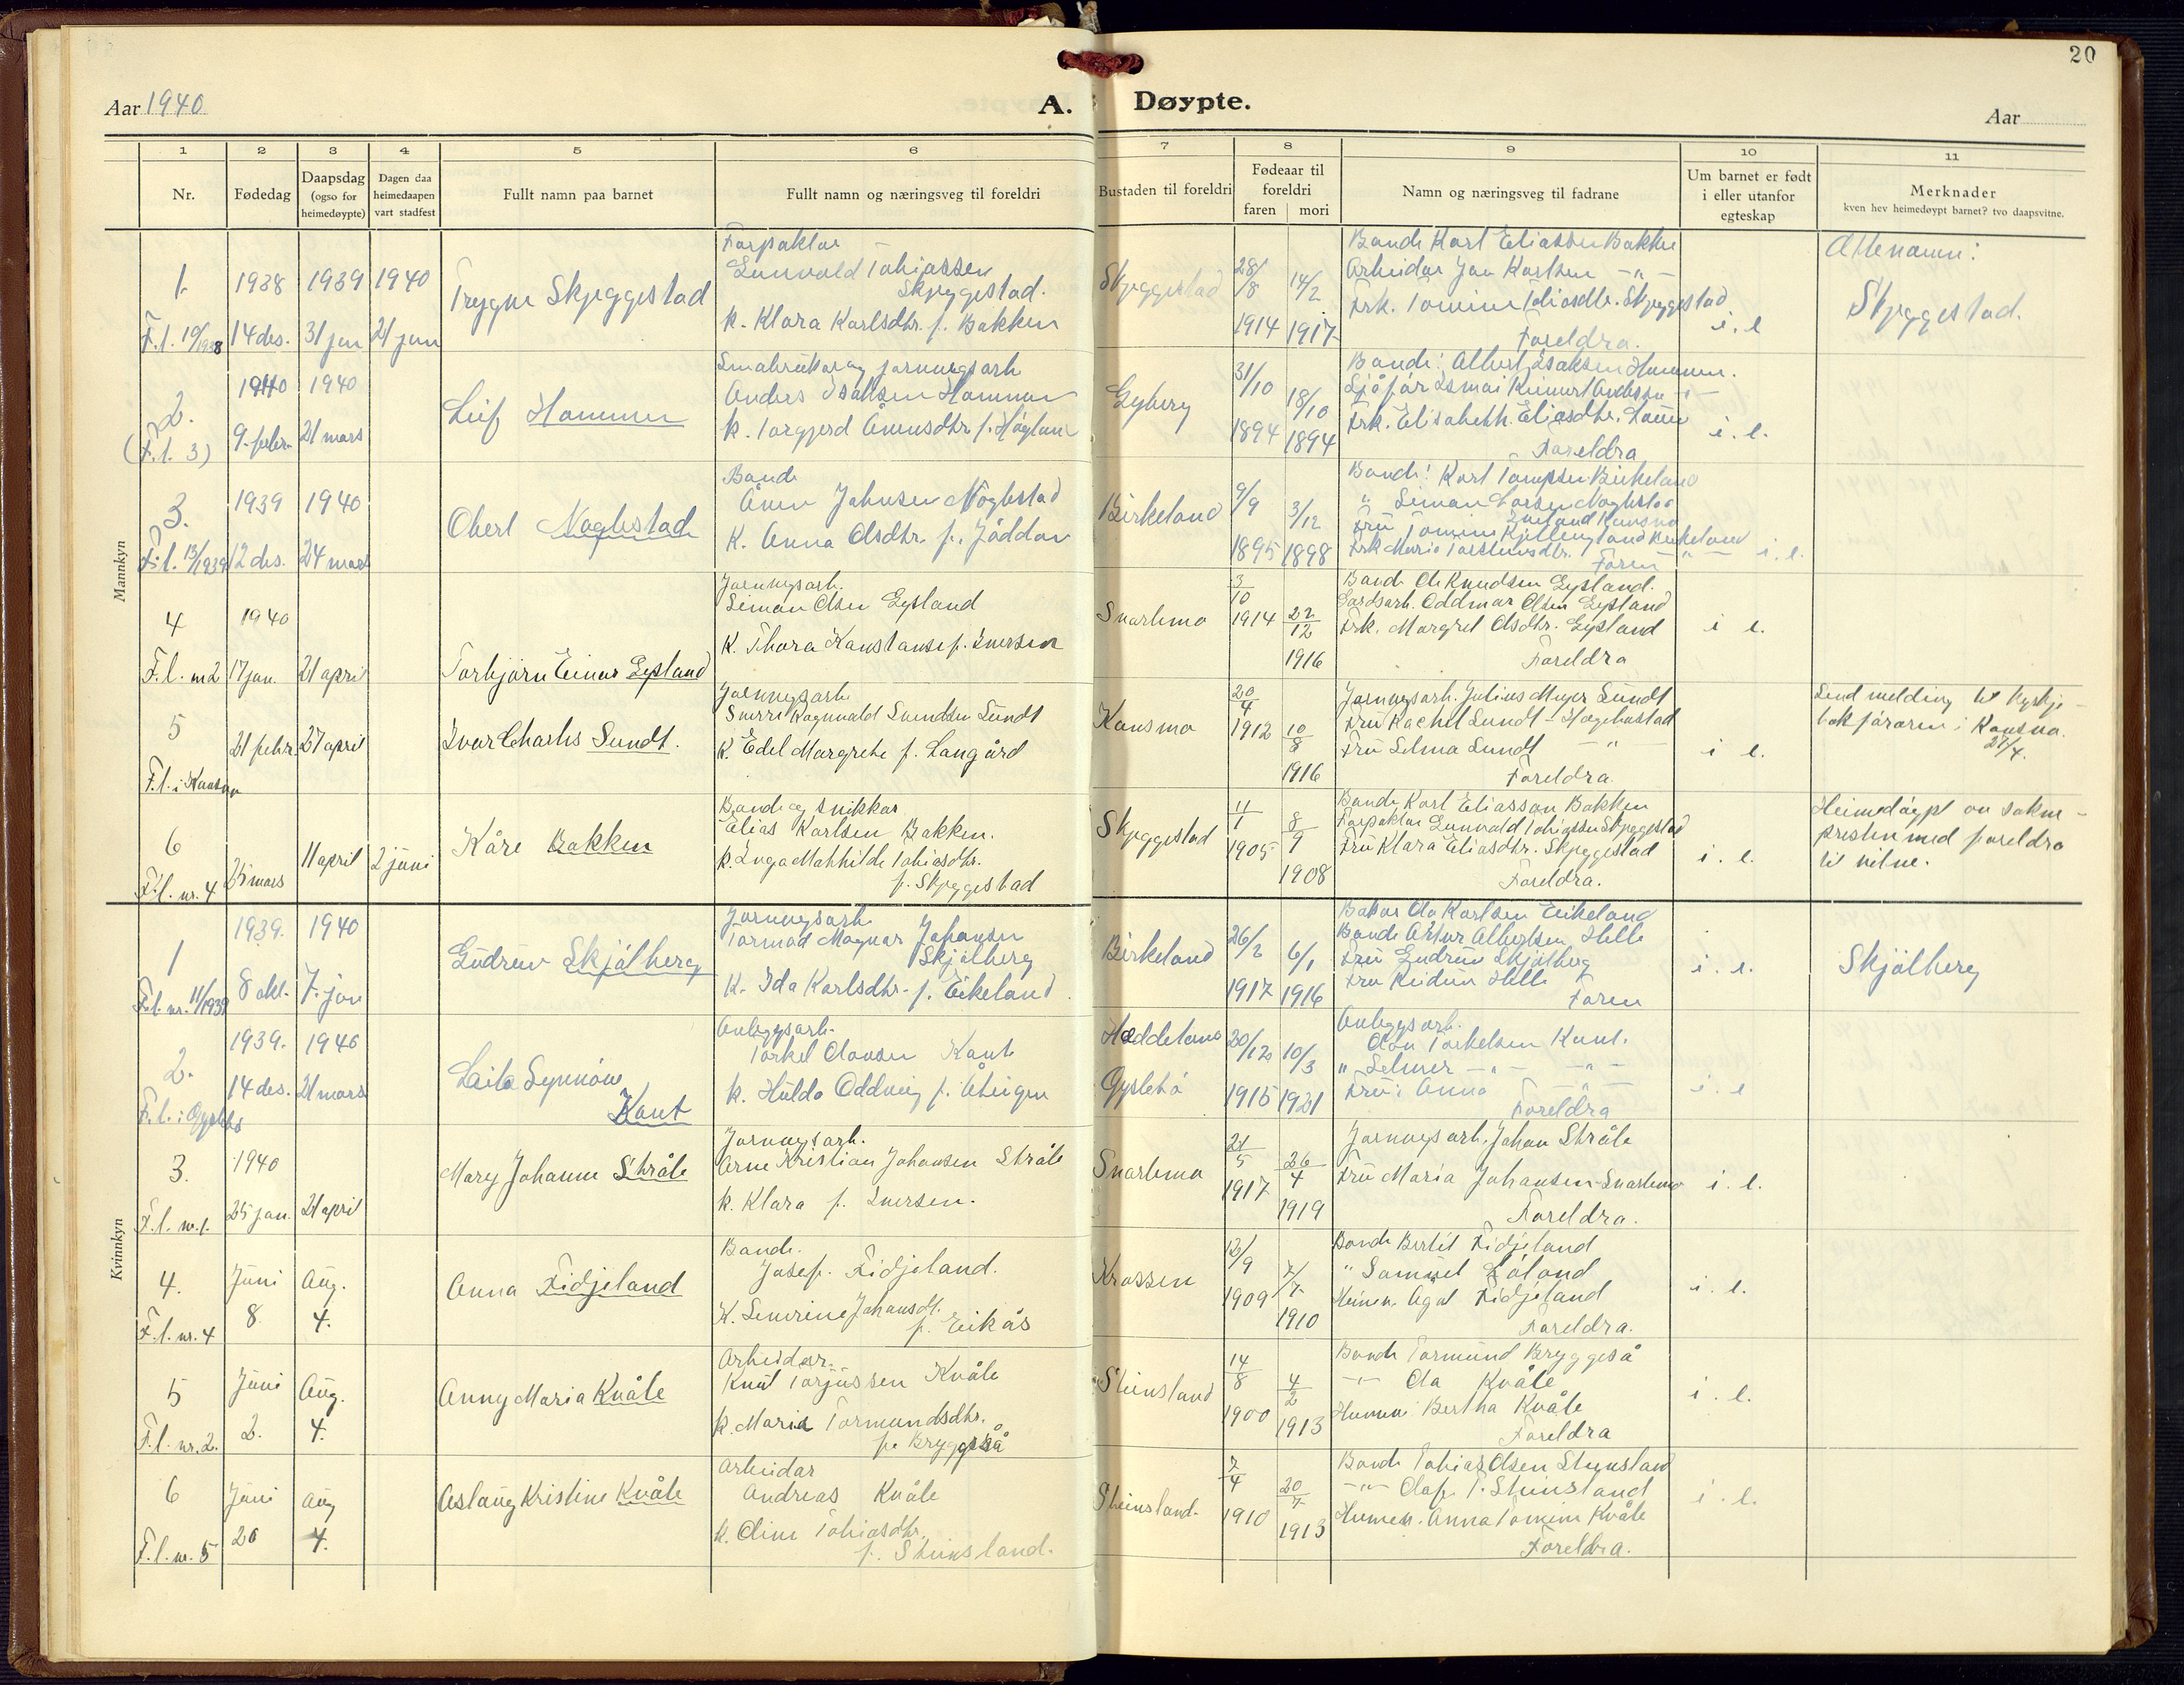 20
Aar 1940
A. Døypte.
Aar
1 2 3 4 5 6 7 8 9 10 11
Nr.
Fødedag
Daapsdag
(ogso for
heimedøypte)
Dagen daa
heimedaapen
vart stadfest
Fullt namn paa barnet
Fullt namn og næringsveg til foreldri
Bustaden til foreldri
Fødeaar til
foreldri
faren mori
Namn og næringsveg til fadrane
Um barnet er født
i eller utanfor
egteskap
Merknader
kven hev heimedøypt barnet? tvo daapsvitne.
Mannkyn
1.
F.l. 10/1938
1938
14 des.
1939
31 jan
1940
21 jan
Trygve Skjeggestad
Forpaktar
Gunvald Tobiassen
Skjeggestad.
k. Klara Karlsdtr. f. Bakken
Skjeggestad
28/8
1914
14/2
1917
Bonde Karl Eliassen Bakken
Arbeidar Jan Karlsen -"-
Frk. Tomine Tobiasdtr. Skjeggestad
Foreldra.
i. e
Ættenamn:
Skjeggestad.
2.
(F.l. 3)
1940
9. febr.
1940
21 mars
Leif Hommen
Småbrukar og jarnvegsarb
Anders Isaksen Hommen
k. Torgjerd Ånensdtr f. Høgland
Eyberg
31/10
1894
18/10
1894
Bonde: Albert Isaksen Hommen.
Sjåfør Ismar Reinert Andersen -"-
Frk. Elisabeth Eliasdtr.
Foreldra
i. e.
3.
F.l. 13/1939
1939
12 des.
1940
24 mars
Obert Noglestad
Bonde
Ånen Johnsen Noglestad
K. Anna Olsdtr f. Jåddan
Birkeland
9/9
1895
3/12
1898
Bonde: Karl Birkeland
" Simon Larsen Noglestad
Fru Tomine
Frk Marie Torsteinsdtr. -"-
Faren
i. e.
4
F.l. nr 2
1940
17 jan.
21 april
Torbjørn Einar Eysland
Jarnvegsarb.
Simon Olsen Eysland
K. Thora Konstanse f. Iversen
Snartemo
3/10
1914
22/12
1916
Bonde Ole Knudsen Eysland.
Gardsarb. Oddmar Olsen Eysland
Frk. Margret Olsdtr. Eysland
Foreldra
i e.
5
F.l. i Kvinesdal
21 febr.
27 april
Ivar Charles Sundt.
Jarnvegsarb
Sverre Ragnvald Svendsen Sundt
K. Edel Margrethe f. Langård
Konsmo
20/4
1912
10/8
1916
Jarnvegsarb. Julius Meyer Sundt
Fru Rachel Sundt - Hægebostad
Fru Selma Sundt -"-
Foreldra.
i e.
Send melding til kyrkje-
bokføraren i Konsmo.
27/4.
6
F.l. nr. 4
25 mars
11 april
2 juni
Kåre Bakken
Bonde og snikkar
Elias Karlsen Bakken.
k. Inga Mathilde Tobiasdtr.
f. Skjeggestad
Skjeggestad
11/1
1905
8/9
1908
Bonde Karl Eliassen Bakken
Forpaktar Gunvald Tobiassen Skjeggestad
Fru Klara Eliasdtr. Skjeggestad
Foreldra.
i. e.
Heimedøypt av sokne-
presten med foreldra
til vitne.
Kvinnkyn
1
F.l. nr. 11/1939
1939.
8 okt.
1940
7. jan
Gudrun Skjålberg
Jarnvegsarb
Tormod Magnar Johansen
Skjålberg
k. Ida Karlsdtr. f. Eikeland.
Birkeland
26/2
1917
6/1
1916
Bakar Ola Karlsen Eikeland
Bonde Artur Albertsen Helle
Fru Gudrun Skjålberg
Fru Reidun Helle
Faren
i. e.
Skjålberg
2.
F.l. i Øyslebø
1939.
14 des.
1940
21 mars
Laila Synnøve
Kant
Anleggsarb.
Torkel Olausen Kant
k. Huldo Oddveig f. Åteigen
Hæddeland
Øyslebø
20/12
1915
10/3
1921
Anleggsarb.
Olav Torkelsen Kant.
" Selmer -"- -"-
Fru: Anna -"-
Foreldra
i. e
3.
F.l. nr. 1.
1940
25 jan.
21 april
Mary Johanne Stråle
Jarnvegsarb.
Arne Kristian Johansen Stråle
k. Klara f. Iversen.
Snartemo
21/5
1917
26/4
1919
Jarnvegsarb. Johan Stråle
Fru Maria Johansen Snartemo
Foreldra.
i. e.
4.
F.l. nr. 4
Juni
8.
Aug.
4.
Anna Fidjeland
Bonde.
Josef. Fidjeland.
K. Severine Johansdt.
f. Eikås
Krossen
12/9
1909
7/7
1910
Bonde Bertil Fidjeland
" Samuel Løland
Heimev. Agot Fidjeland
Foreldra.
i. e.
5
F.l. nr. 2.
Juni
2.
Aug.
4.
Anny Maria Kvåle
Arbeidar.
Knut Torjussen Kvåle
k. Maria Tormundsdtr.
f. Bryggeså
Steinsland
14/8
1900
4/2
1913
Bonde Tormund Bryggeså
-"- Ola Kvåle
Heimev. Bertha Kvåle
Foreldra
i. e.
6
F.l. nr. 5
Juni
26
Aug
4.
Aslaug Kristine Kvåle
Arbeidar
Andreas Kvåle
k. Oline Tobiasdtr.
f. Steinsland.
Steinsland.
7/4
1910
20/7
1913
Bonde Tobias Olsen Steinsland
-"- Olaf T. Steinsland
Heimev. Anna Tomine Kvåle
Foreldra.
i. e.